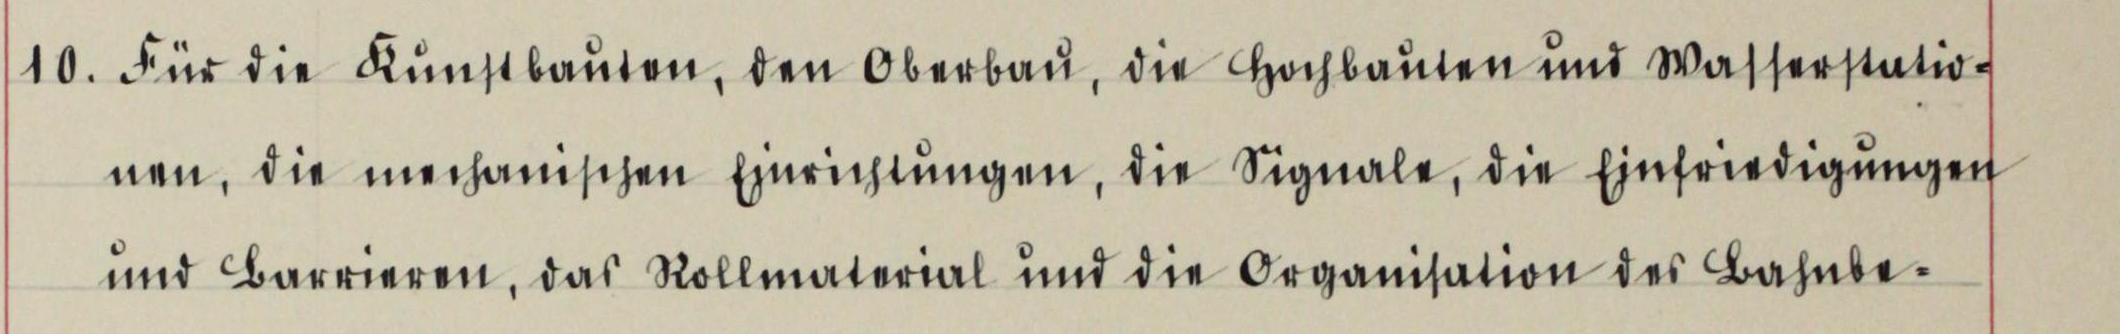 10. Für die Kunstbauten, den Oberbau, die Hochbauten und Wasserstatio-
nen, die mechanischen Einrichtungen, die Signale, die Einfriedigungen
und Barrieren, das Rollmaterial und die Organisation des Bahnbe-